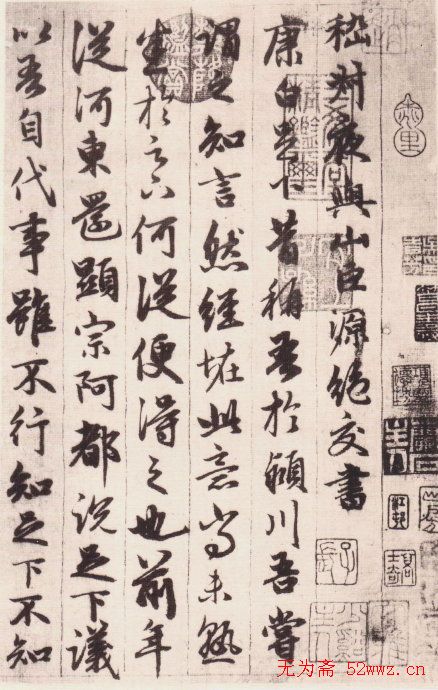 嵇叔夜與山巨源絕交書
康白足下昔稱吾於潁川吾嘗
謂之知言然經怪此意尚未熟
悉於足下何從便得之也前年
從河東還顯宗阿都說足下議
以吾自代事雖不行知足下不知
无为斋 52wwz.cn